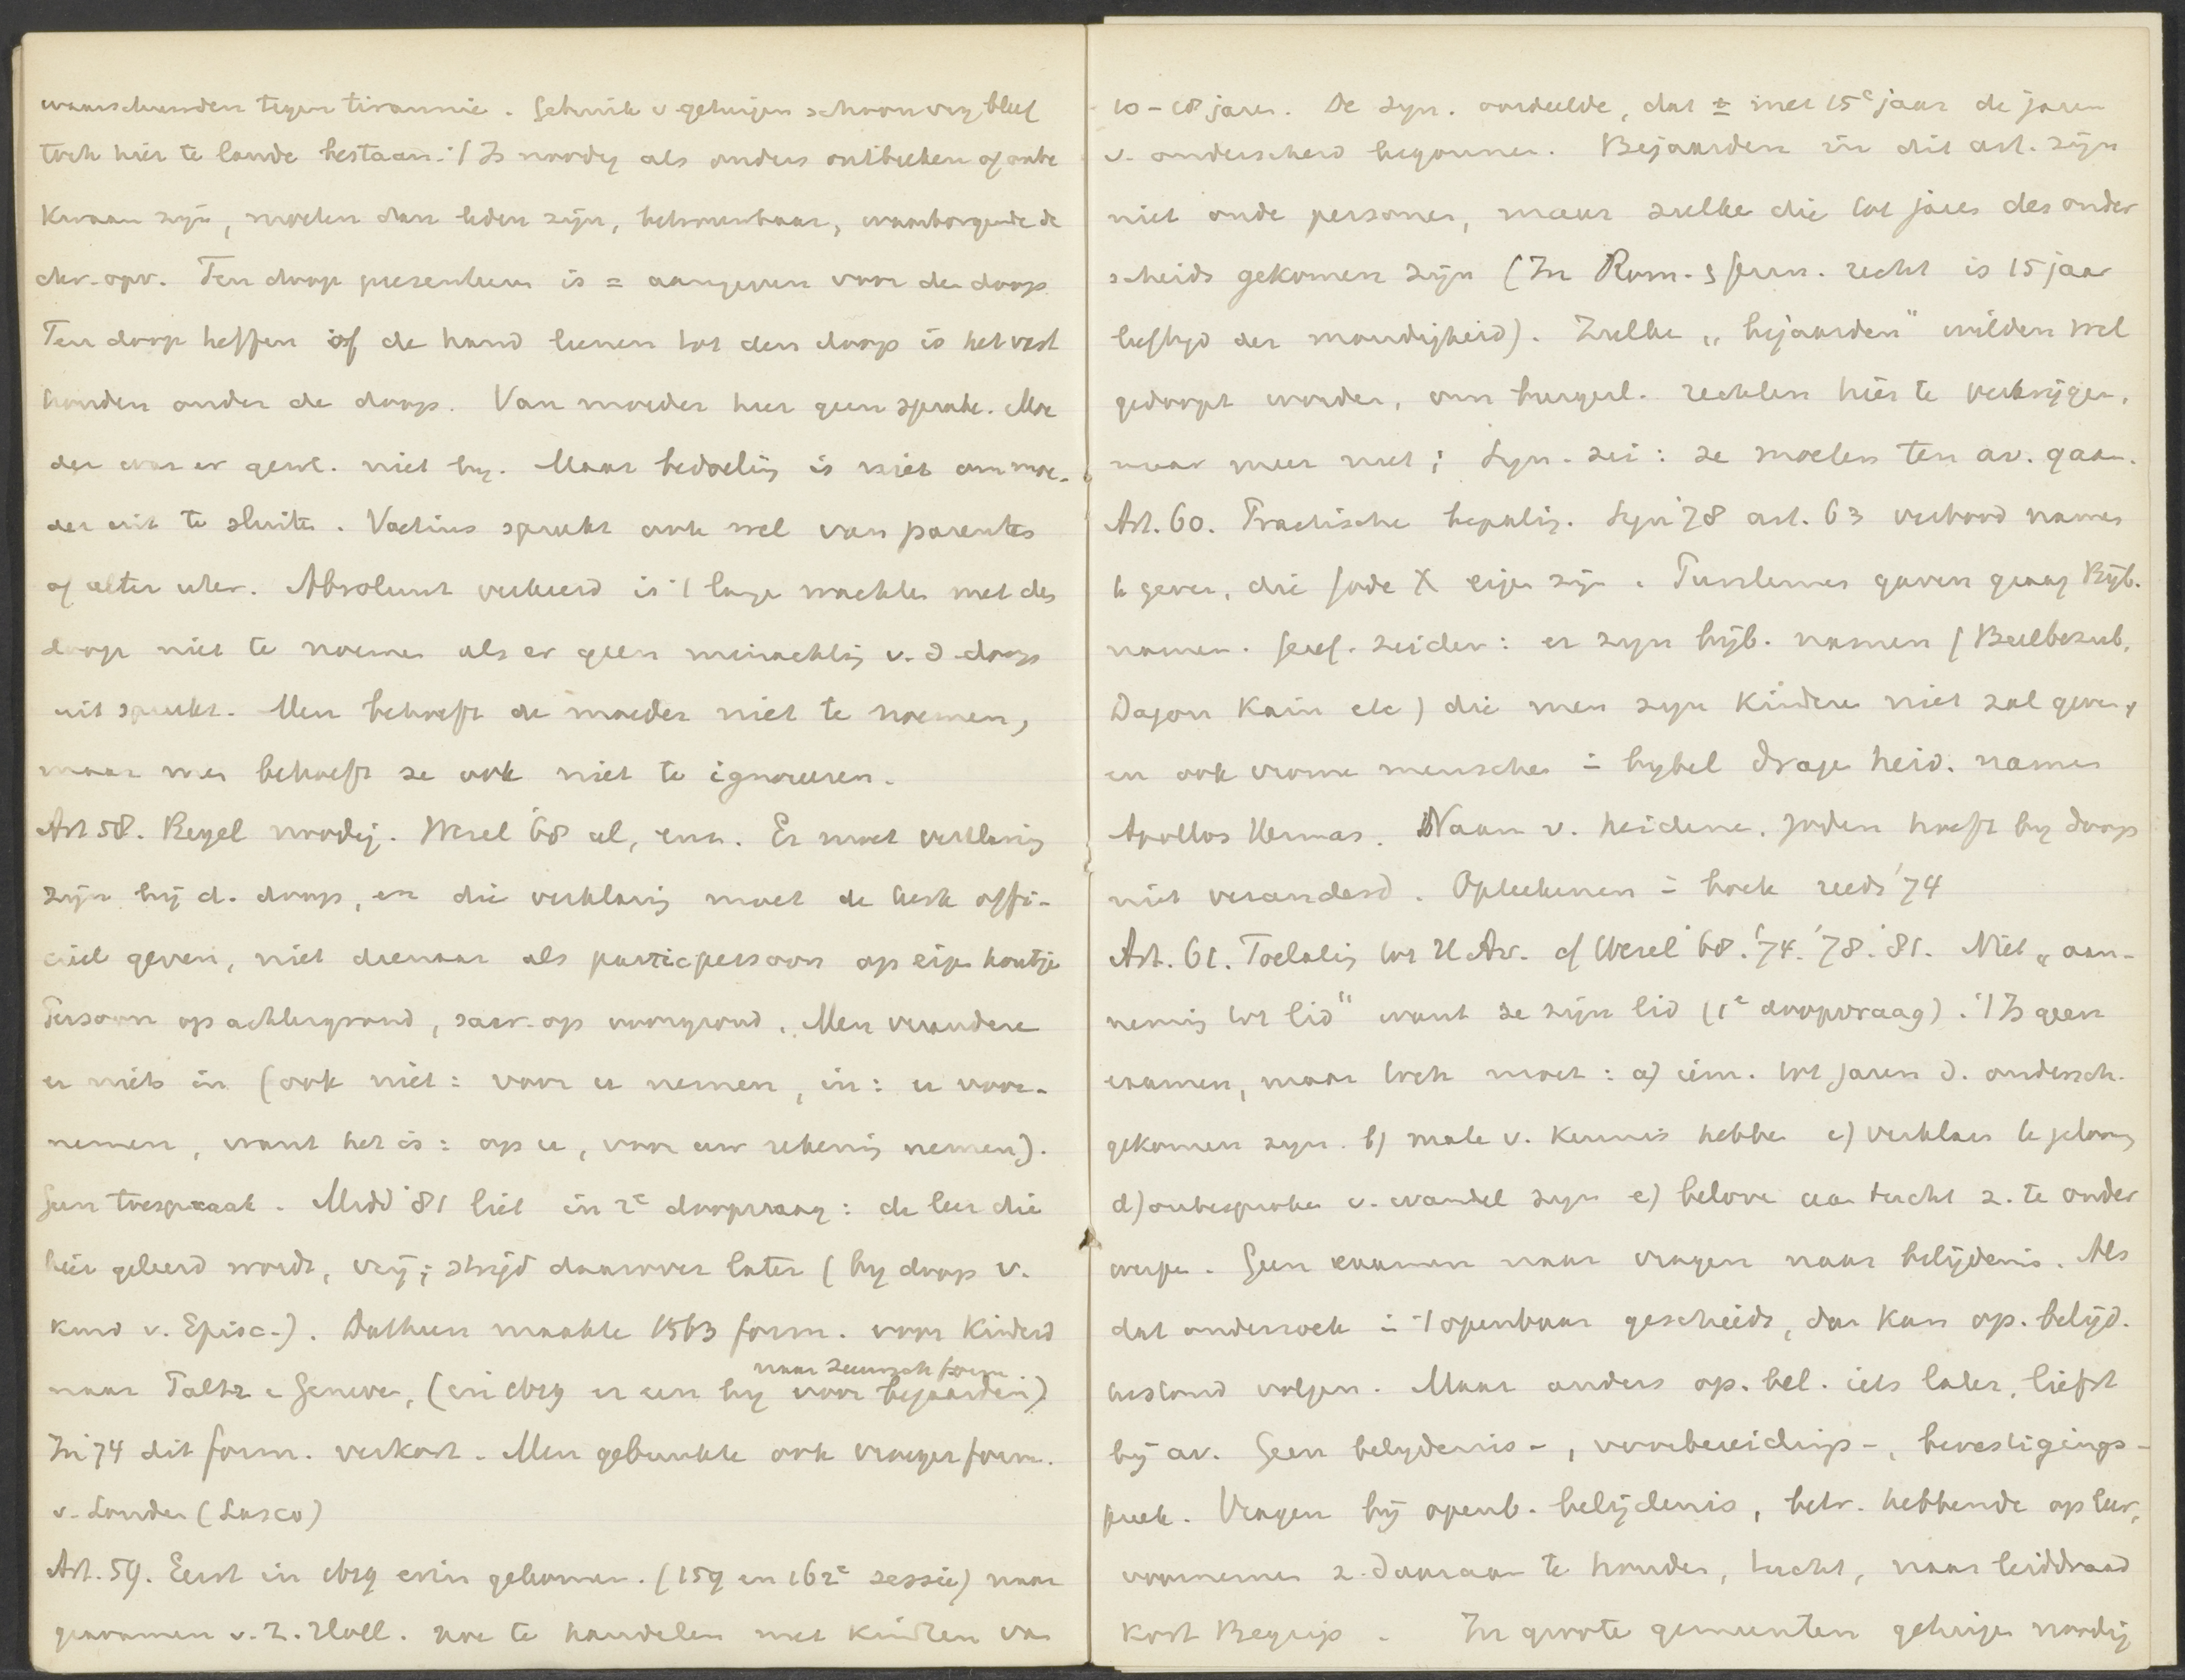 waarschuwden tegen tirannie. Gebruik v getuigen schoorvoetend bleef
toch hier te lande bestaan. 't Is noodig als ouders ontbreken of onbe
kwaam zijn, moeten dan leden zijn, betrouwbaar, waarborgende de
chr. opv. Ten doop presenteeren is = aangeven voor den doop
Ten doop heffen of de hand leenen tot den doop is het vast
houden onder de doop. Van moeder hier geen sprake. Moe
der was er gew. niet bij. Maar bedoeling is niet om moe-
der uit te sluiten. Voetius spreekt ook wel van parentes
of alter uter. Absoluut verkeerd is 't lange wachten met den
doop niet te noemen als er geen minachting v. d. doop
uit spreekt. Men behoeft de moeder niet te noemen,
maar men behoeft ze ook niet te ignoreeren.
Art 58. Regel noodig. Wesel '68 al, enz. Er moet verklaring
zijn bij d. doop, en die verklaring moet de kerk offi-
cieel geven, niet dienaar als particpersoon op eigen houtje
Persoon op achtergrond, sacr. op voorgrond. Men verandere
er niets in (ook niet: voor u nemen, in: u voor-
nemen, want het is: op u, voor uw rekening nemen).
Geen toespraak. Midd '81 liet in 2e doopvraag: de leer die
hier geleerd wordt, vrij; strijd daarover later (bij doop v.
kind v. Episc.). Datheen maakte 1563 form. voor Kinderd
naar Paltz e Geneve, (in 1619 er een bij voor bejaarden)
naar Zeeuwsch form.
In '74 dit form. verkort. Men gebruikte ook vroeger form.
v. Londen (Lasco)
Art. 59. Eerst in 1619 erin gekomen. (159 en 162e sessie) naar
gravamen v. Z. Holl. hoe te handelen met kinderen van
10-18 jaren. De syn. oordeelde, dat ± met 15e jaar de jaren
v. onderscheid begonnen. Bejaarden in dit art. zijn
niet oude personen, maar zulke die tot jaren des onder
scheids gekomen zijn (In Rom. & germ. recht is 15 jaar
leeftijd der mondigheid). Zulke „bejaarden" wilden wel
gedoopt worden, om burgerl. rechten hier te verkrijgen,
maar meer niet; Syn. zei: ze moeten ten av. gaan.
Art. 60. Practische bepaling. Syn '78 art. 63 verbood namen
te geven, die Gode X eigen zijn. Puriteinen gaven graag Bijb.
namen. Geref. zeiden: er zijn bijb. namen (Beelbezub,
Dagon Kain etc) die men zijn kinderen niet zal geven,
en ook vrome menschen = bijbel dragen heid. namen
Apollos Hermas. Naam v. heidenen, Joden hoeft bij doop
niet veranderd. Opteekenen = boek reeds '74
Art. 61. Toelating tot H Av. cf Wesel '68. '74. '78. '81. Niet „aan-
neming tot lid" want ze zijn lid (1e doopvraag). 't Is geen
examen, maar toch moet: a) iem. tot jaren d. ondersch.
gekomen zijn. b) mate v. kennis hebben c) verklaren te gelooven
d) onbesproken v. wandel zijn e) beloven aan tucht z. te onder
werpen. Geen examen naar vragen naar belijdenis. Als
dat onderzoek = 't openbaar geschiedt, dan kan op. belijd.
terstond volgen. Maar anders op. bel. iets later, liefst
bij av. Geen belydenis-, voorbereidings-, bevestigings-
preek. Vragen bij openb. belijdenis, betr. hebbende op leer,
voornemen z. daaraan te houden, tucht, naar leiddraad
Kort Begrip. In groote gemeenten getuigen noodig